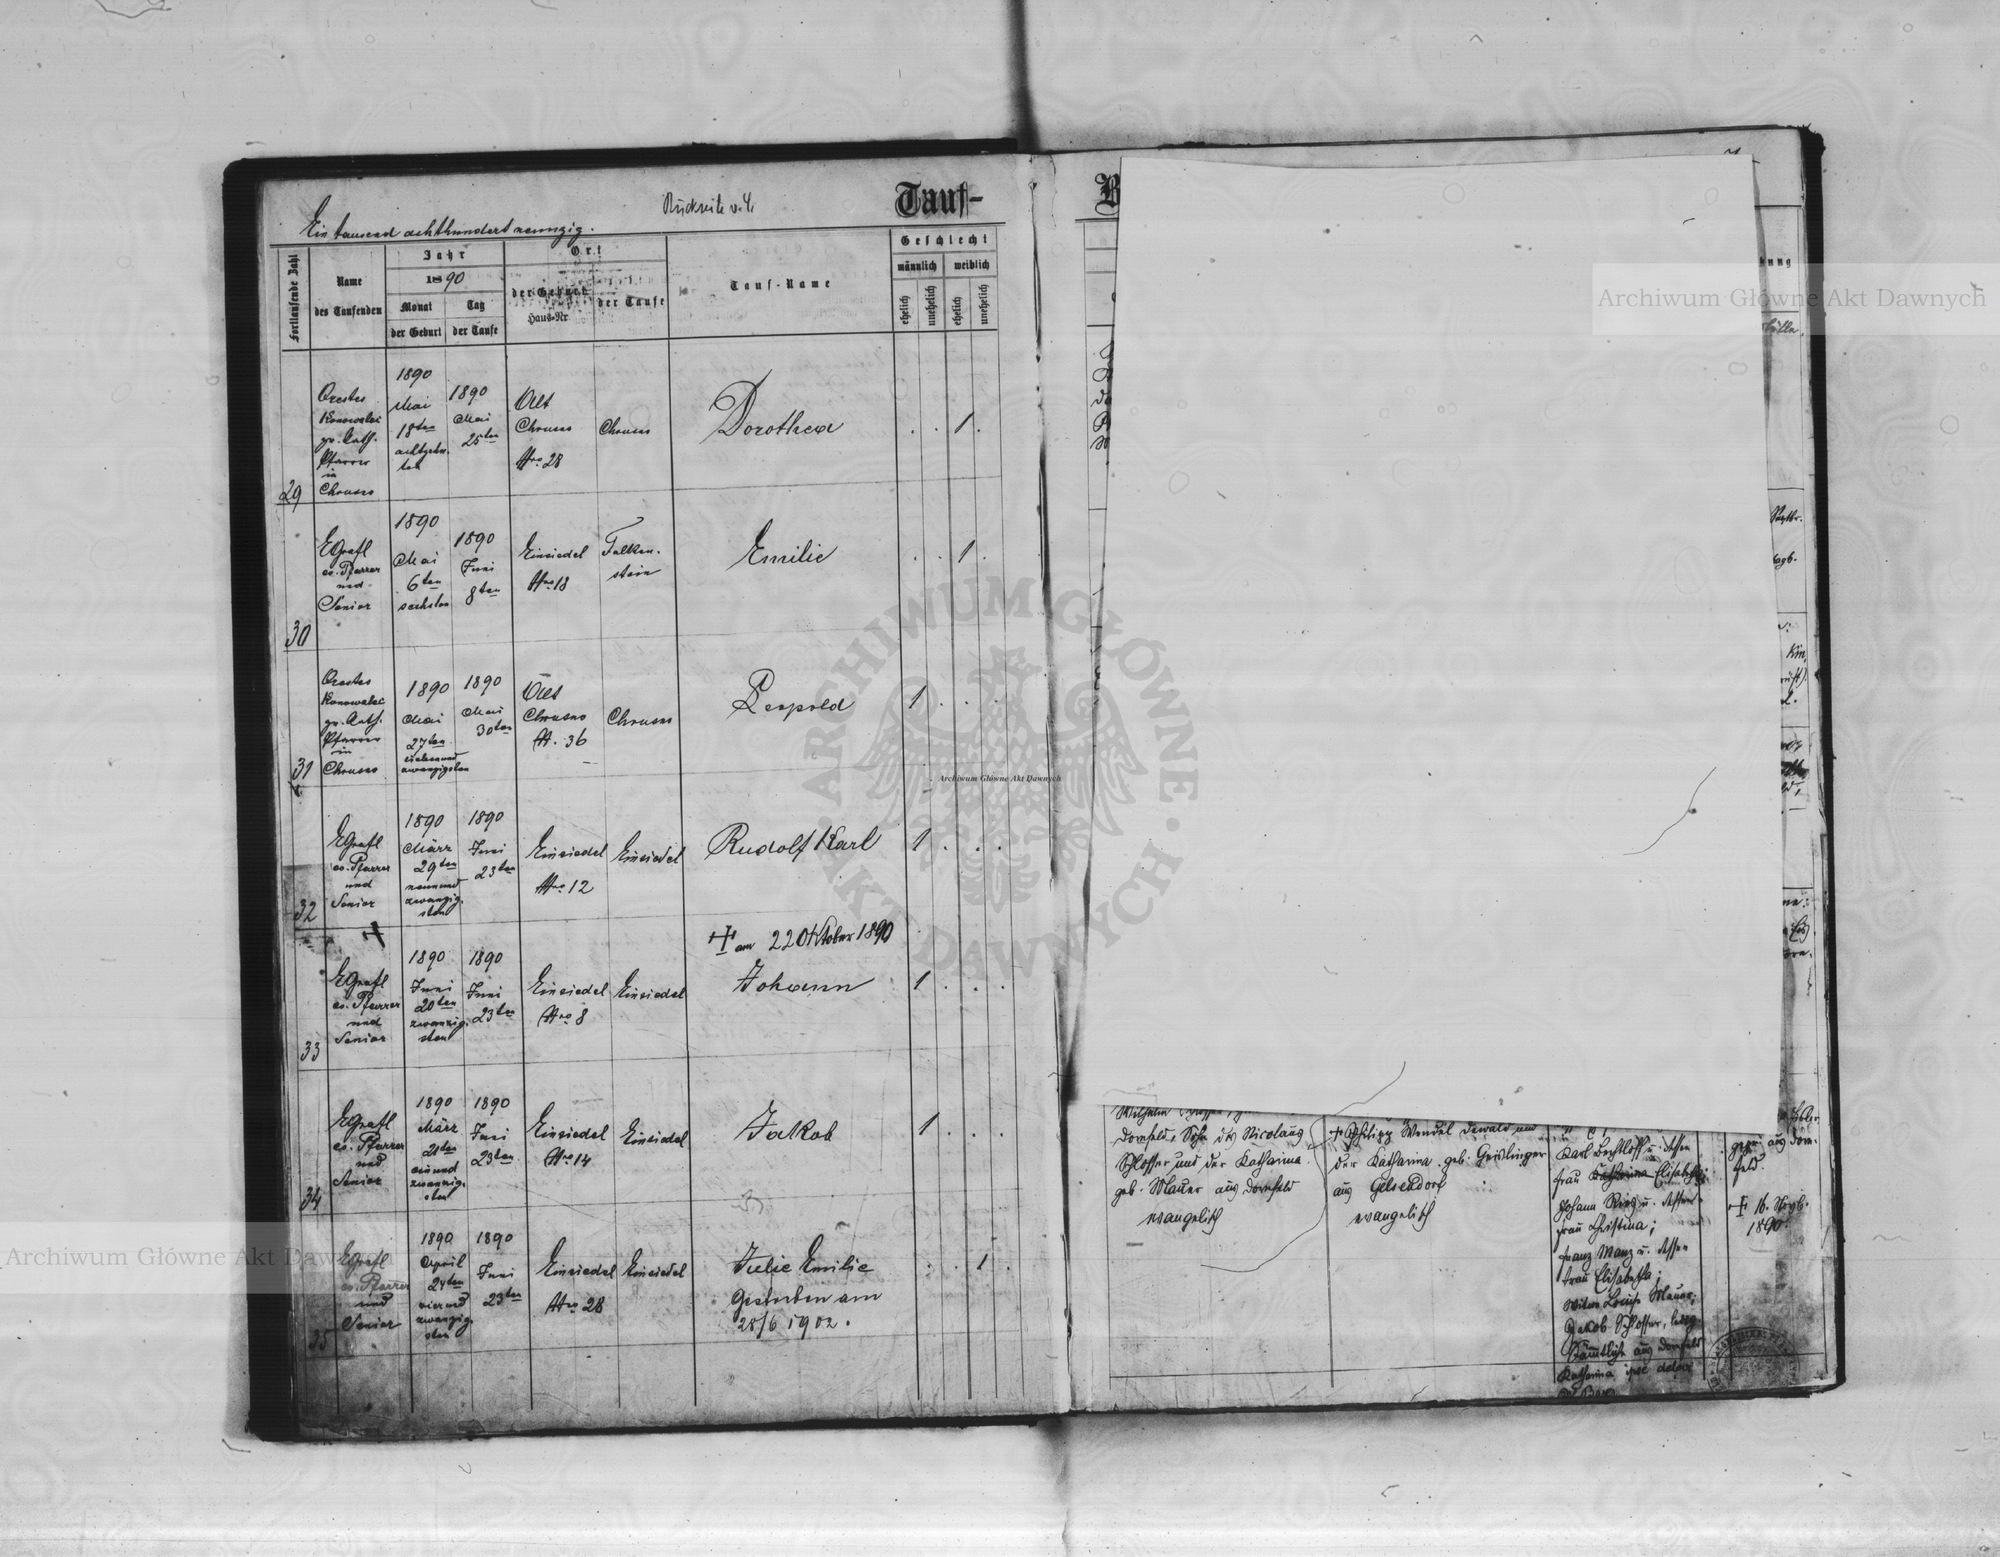 Rückseite v. 4.
Tauf-
Ein tausend achthundert neunzig.
Fortlaufende Zahl
Name
des Taufenden
Jahr
1890
Monat
der Geburt
Tag
der Taufe
Ort
der Geburt
Haus-Nr
der Taufe
Tauf-Name
Geschlecht
männlich
weiblich
ehelich
unehelich
ehelich
unehelich
29
Orestes
Konowalec
gr. Kath.
Pfarrer
in
Chrusno
1890
Mai
18ten
achtzehn-
ten
1890
Mai
25ten
Alt
Chrusno
Nro 28
Chrusno
Dorothea
. . 1 .
30
EGrafl
ev. Pfarrer
und
Senior
1890
Mai
6ten
sechsten
1890
Juni
8ten
Einsiedel
Nro 18
Falken-
stein
Emilie
. . 1 .
31
Orestes
Konowalec
gr. Kath.
Pfarrer
in
Chrusno
1890
Mai
27ten
siebenund
zwanzigsten
1890
Mai
30ten
Alt
Chrusno
N. 36
Chrusno
Leopold
1 . . .
32
EGrafl
ev. Pfarrer
und
Senior
1890
März
29ten
neunund
zwanzig-
sten
1890
Juni
23ten
Einsiedel
Nro 12
Einsiedel
Rudolf Karl
1 . . .
33
EGrafl
ev. Pfarrer
und
Senior
1890
Juni
20ten
zwanzig-
sten
1890
Juni
23ten
Einsiedel
Nro 8
Einsiedel
am 22 Oktober 1890
Johann
1 . . .
34
EGrafl
ev. Pfarrer
und
Senior
1890
März
21ten
einund
zwanzig-
sten
1890
Juni
23ten
Einsiedel
Nro 14
Einsiedel
Jakob
1 . . .
35
EGrafl
ev. Pfarrer
und
Senior
1890
April
24ten
vierund
zwanzig-
sten
1890
Juni
23ten
Einsiedel
Nro 28
Einsiedel
Julie Emilie
Gestorben am
28/6 1902.
. . 1 .
Wilhelm
Dornfeld, Sohn des Nicolaus
Schlosser und der Katharina
geb. Mauer aus Dornfeld
evangelisch
Philipp Wendel Dewald und
der Katharina geb. Geislinger
aus Gelsendorf
evangelisch
Karl Bechtloff u. dessen
Frau Katharina Elisabetha;
Johann Ring u. dessen
Frau Christina;
Franz Manz u. dessen
Frau Elisabetha;
Witwe Louise Mauer;
Jakob Schlosser, ledig
Sämtliche aus Dornfeld
Katharina
aus Dorn-
feld.
16. Novb.
1890.
Archiwum Główne Akt Dawnych
Archiwum Główne Akt Dawnych
Archiwum Główne Akt Dawnych
ARCHIWUM GŁÓWNE · AKT DAWNYCH ·